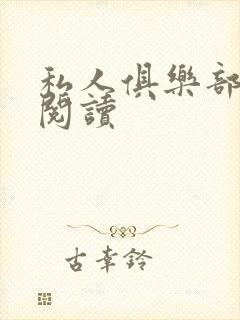 私人俱樂部
閱讀
古幸鈴